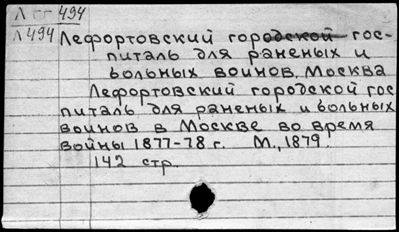 Л 494
Л494 Лефортовский городской гос-
питаль для раненых и
больных воинов. Москва
Лефортовский городской гос
питаль для раненых и больных
воинов в Москве во время
войны 1877-78 г. М., 1879.
142 стр.